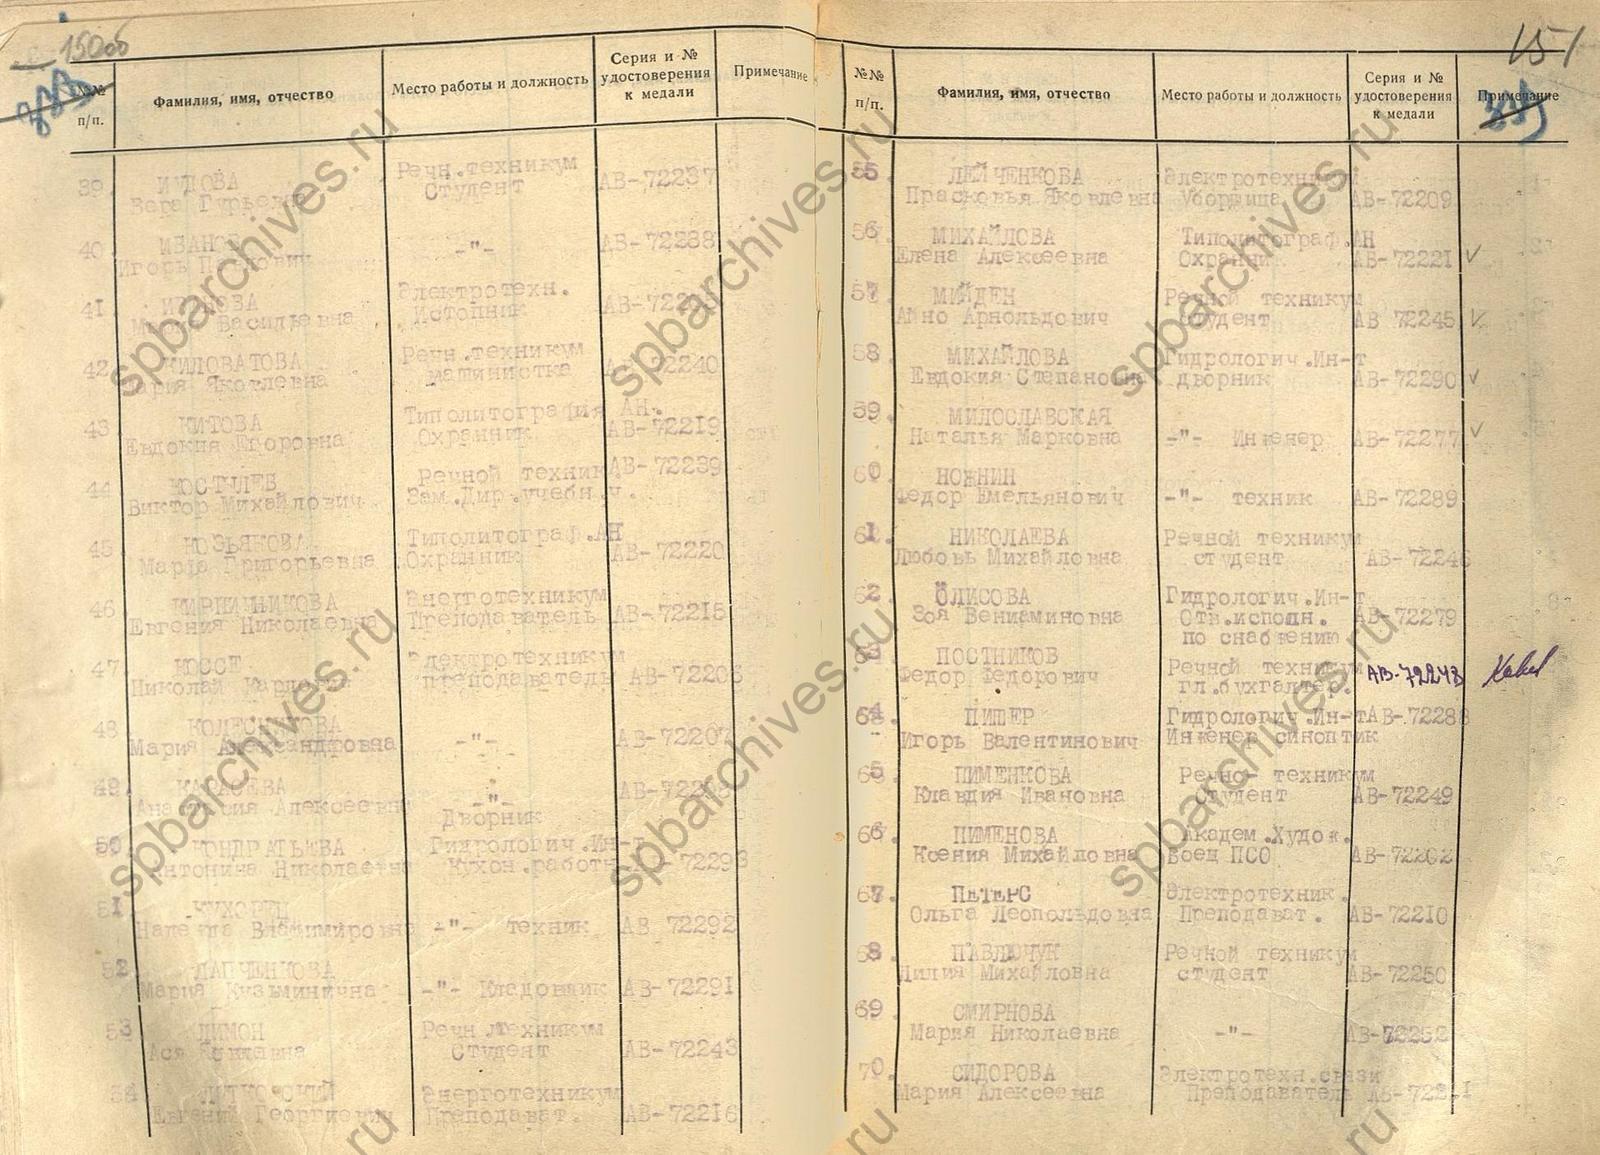 150об
№№ п/п.
Фамилия, имя, отчество
Место работы и должность
Серия и № удостоверения к медали
Примечание
39.
Вера Гурьевна
Речн.техникум
Студент
АВ-72237
40.
ИВАНОВ
Игорь
-"-
АВ-72238
41.
Мария Васильевна
Электротехн.
Истопник
42.
Мария Яковлевна
Речн.техникум
машинистка
АВ-72240
43.
КИТОВА
Евдокия Егоровна
Типолитография АН.
Охранник
АВ-72219
44.
КОСТЫЛЕВ
Виктор Михайлович
Речной техник.
Зам.Дир.учебн.ч.
АВ-72239
45.
КОЗЬЯКОВА
Мария Григорьевна
Типолитограф.АН
Охранник
АВ-72220
46.
КИРПИЧНИКОВА
Евгения Николаевна
Энерготехникум
Преподаватель
АВ-72215
47.
КОССЕ
Николай Карлович
Электротехникум
преподаватель
48.
КОЛЕСНИКОВА
Мария Александровна
-"-
АВ-72207
49.
КАРАСЕВА
Анастасия Алексеевна
-"-
Дворник
АВ-72208
50.
КОНДРАТЬЕВА
Антонина Николаевна
Гидрологич.Ин-т
Кухон.работн.
72293
51.
Надежда Владимировна
-"- техник
АВ 72292
52.
ЛАПЧЕНКОВА
Мария Кузьминична
-"- Кладовщик
АВ-72291
53.
ЛИМОН
Ася
Речн.техникум
Студент
АВ-72243
54.
Евгений Георгиевич
Энерготехникум
Преподават.
АВ-72216
151
№№ п/п.
Фамилия, имя, отчество
Место работы и должность
Серия и № удостоверения к медали
Примечание
55.
ЛЕЙЧЕНКОВА
Прасковья Яковлевна
Электротехникум
Уборщица
АВ-72209
56.
МИХАЙЛОВА
Елена Алексеевна
Типолитограф.АН
Охранник
АВ-72221 ✓
57.
МИЙДЕН
Айно Арнольдович
Речной техникум
студент
АВ 72245 ✓
58.
МИХАЙЛОВА
Евдокия Степановна
Гидрологич.Ин-т
дворник
АВ-72290 ✓
59.
МИЛОСЛАВСКАЯ
Наталья Марковна
-"- Инженер
АВ-72277 ✓
60.
НОЖНИН
Федор Емельянович
-"- техник
АВ-72289
61.
НИКОЛАЕВА
Любовь Михайловна
Речной техникум
студент
АВ-72246
62.
ОЛИСОВА
Зоя Вениаминовна
Гидрологич.Ин-т
Отв.исполн.
по снабжению
АВ-72279
63.
ПОСТНИКОВ
Федор Федорович
Речной техникум
гл.бухгалтер.
АВ-72248
64.
ПИШЕР
Игорь Валентинович
Гидрологич.Ин-т
Инженер синоптик
АВ-72288
65.
ПИМЕНКОВА
Клавдия Ивановна
Речно- техникум
студент
АВ-72249
66.
ПИМЕНОВА
Ксения Михайловна
Академ.Худож.
Боец ПСО
АВ-72202
67.
ПЕТЕРС
Ольга Леопольдовна
Электротехник.
Преподават.
АВ-72210
68.
ПАВЛЮЧУК
Лилия Михайловна
Речной техникум
студент
АВ-72250
69.
СМИРНОВА
Мария Николаевна
-"-
АВ-72252
70.
СИДОРОВА
Мария Алексеевна
Электротехн.связи
Преподаватель
spbarchives.ru
spbarchives.ru
spbarchives.ru
spbarchives.ru
spbarchives.ru
spbarchives.ru
ru
ru
ru